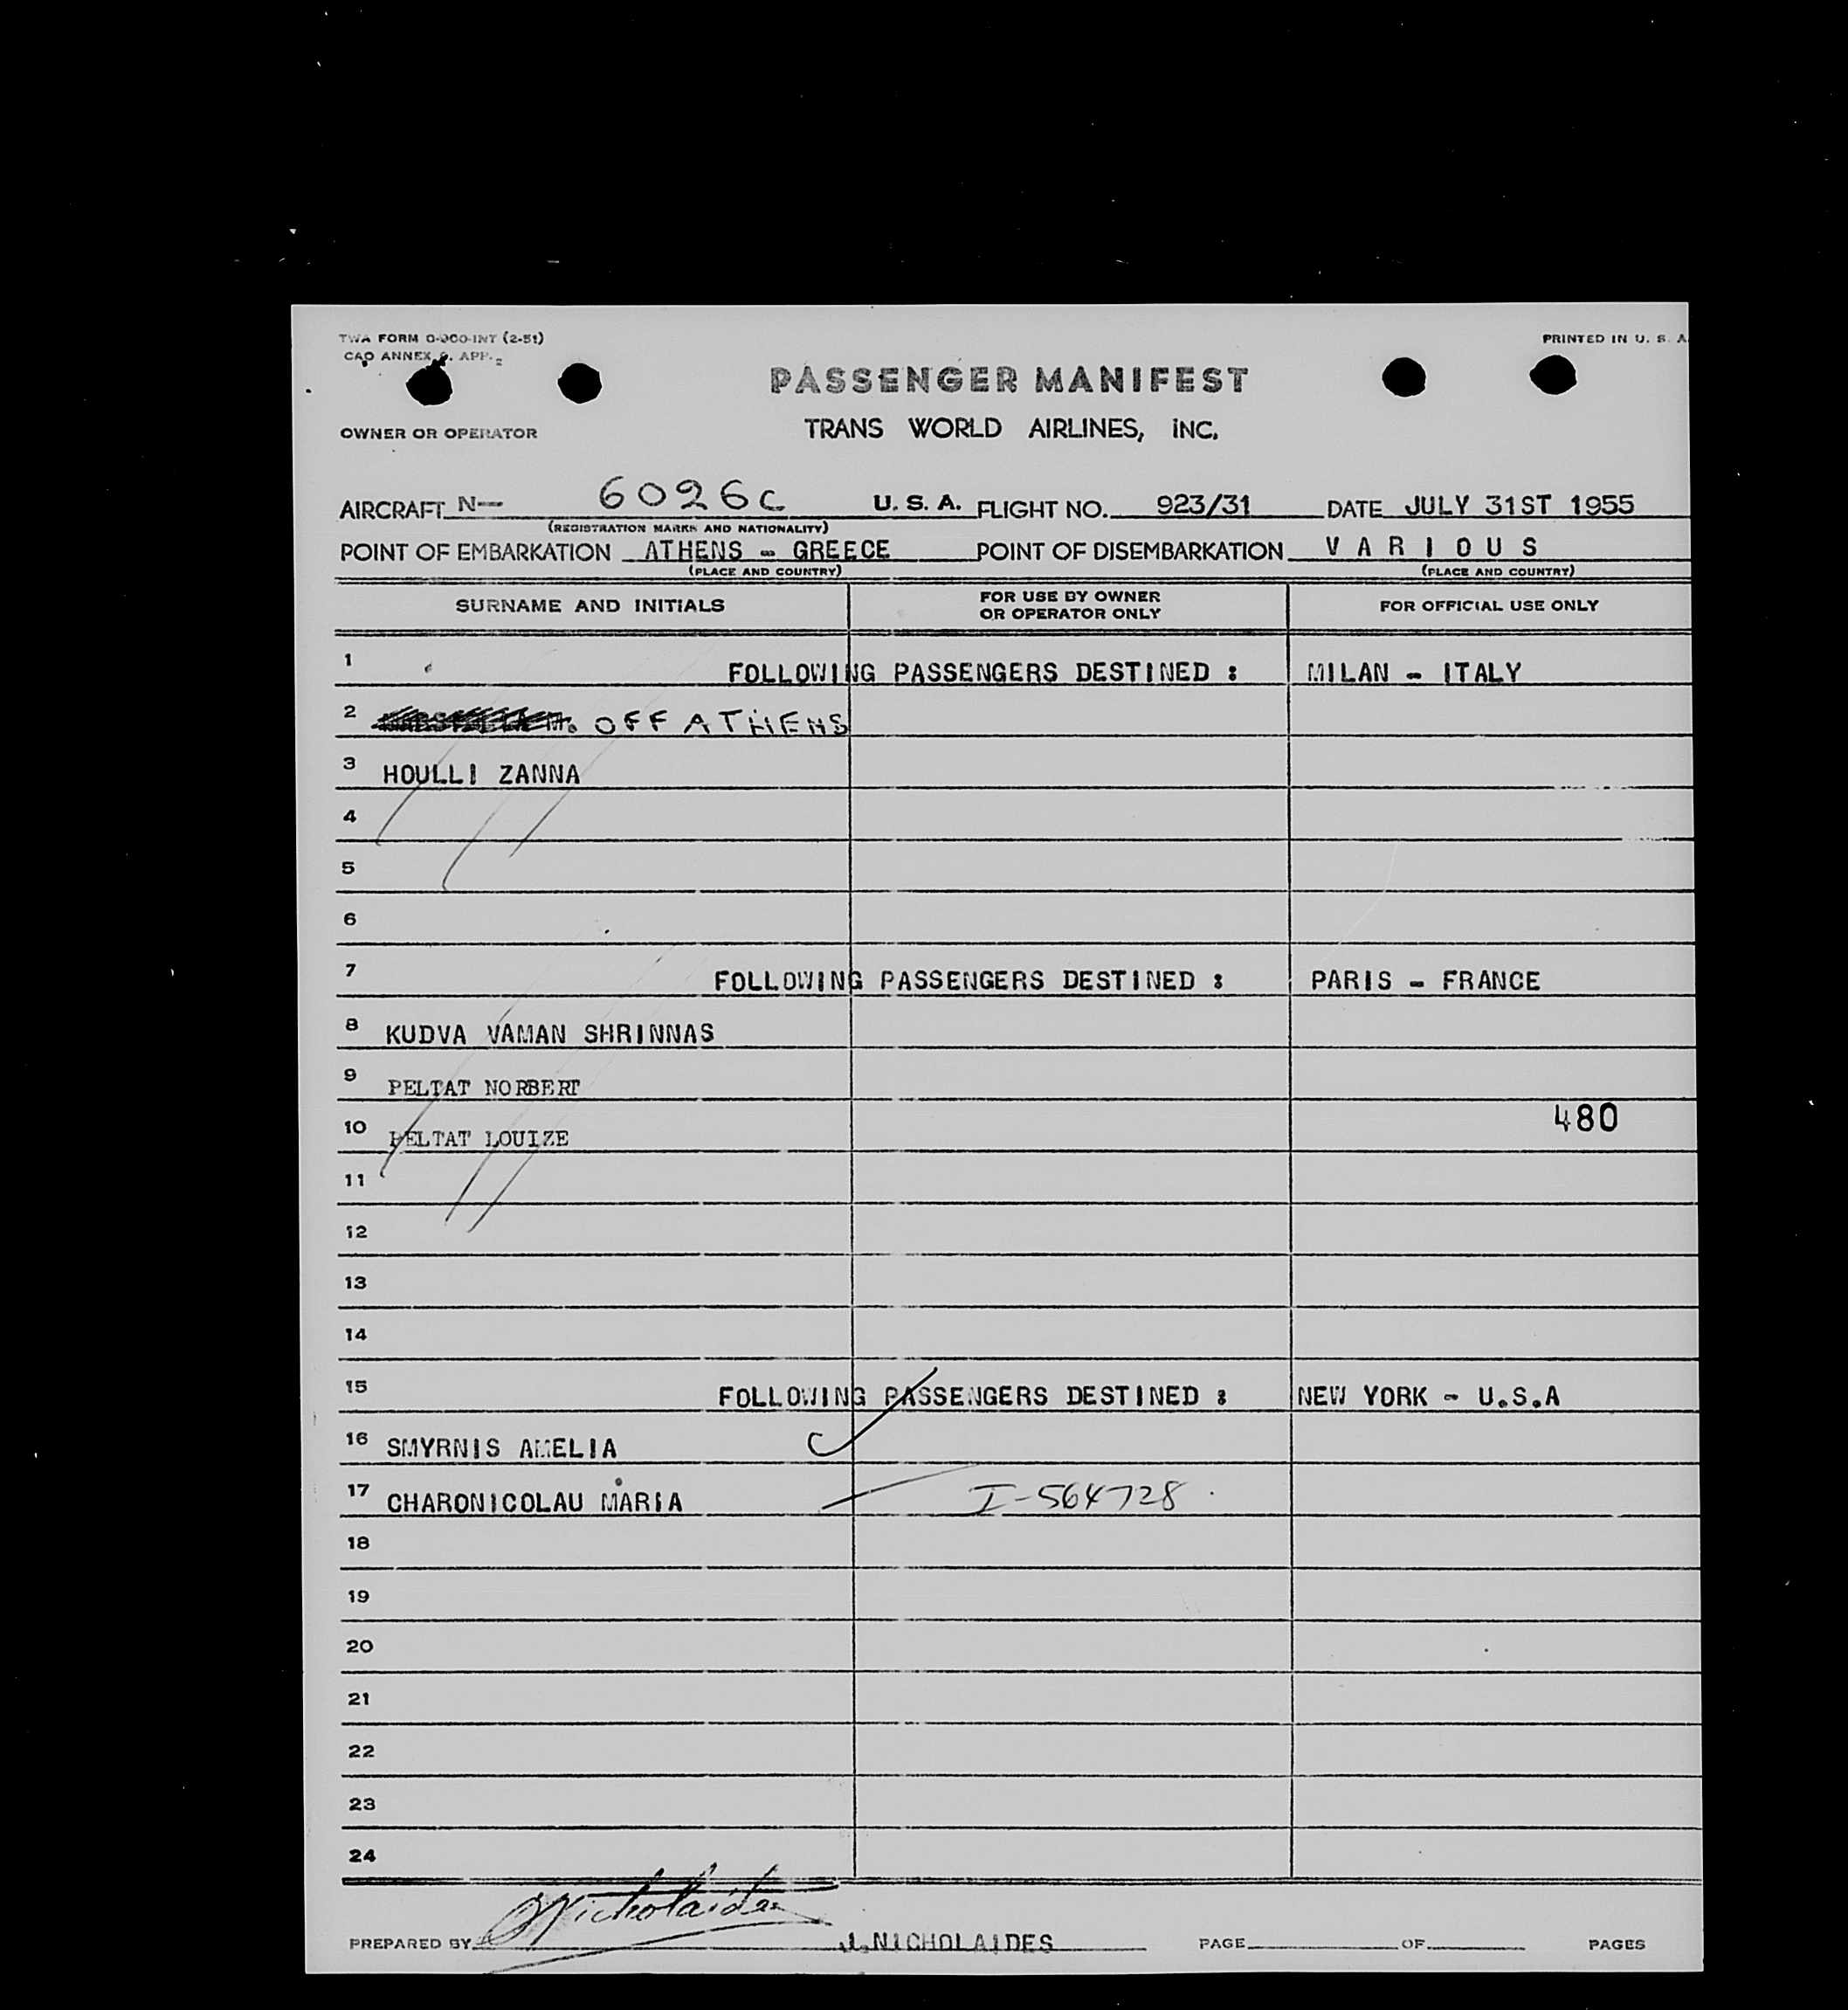 TWA FORM O-900-INT (2-51)
PRINTED IN U. S. A.
CAO ANNEX 9. APP.
PASSENGER MANIFEST
OWNER OR OPERATOR
TRANS WORLD AIRLINES, INC.
AIRCRAFT N— 6026C U. S. A. FLIGHT NO. 923/31 DATE JULY 31ST 1955
(REGISTRATION MARKS AND NATIONALITY)
POINT OF EMBARKATION ATHENS - GREECE POINT OF DISEMBARKATION V A R I O U S
(PLACE AND COUNTRY) (PLACE AND COUNTRY)
SURNAME AND INITIALS FOR USE BY OWNER OR OPERATOR ONLY FOR OFFICIAL USE ONLY
1 FOLLOWING PASSENGERS DESTINED : MILAN - ITALY
2 OFF ATHENS
3 HOULLI ZANNA
4
5
6
7 FOLLOWING PASSENGERS DESTINED : PARIS - FRANCE
8 KUDVA VAMAN SHRINNAS
9 PELTAT NORBERT
10 PELTAT LOUIZE 480
11
12
13
14
15 FOLLOWING PASSENGERS DESTINED : NEW YORK - U.S.A
16 SMYRNIS AMELIA
17 CHARONICOLAU MARIA I-564728
18
19
20
21
22
23
24
PREPARED BY JNicholaides J.NICHOLAIDES PAGE OF PAGES